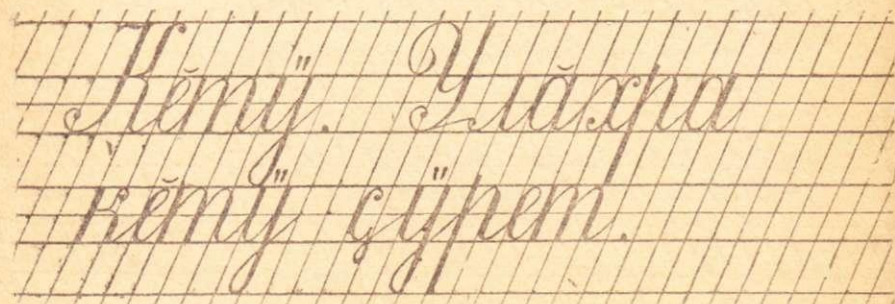 Кӗтӳ. Улӑхра
кӗтӳ ҫӳрет.